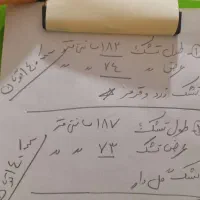 ① طول تشک ۱۸۲ سانتی متر
عرض 〃 ۷۴ 〃 〃
تشک زرد و قرمز
② طول تشک ۱۸۷ سانتی متر
عرض تشک ۷۳ 〃 〃
تشک گل دار